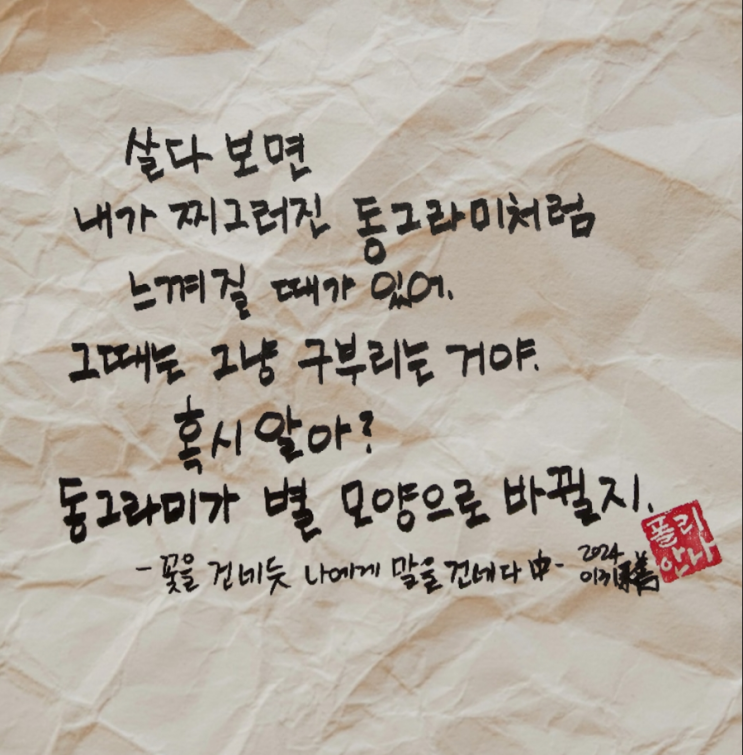 살다 보면
내가 찌그러진 동그라미처럼
느껴질 때가 있어.
그때는 그냥 구부리는 거야.
혹시 알아?
동그라미가 별 모양으로 바뀔지.
-꽃을 건네듯 나에게 말을 건네다 中-
2024
폴리
안나